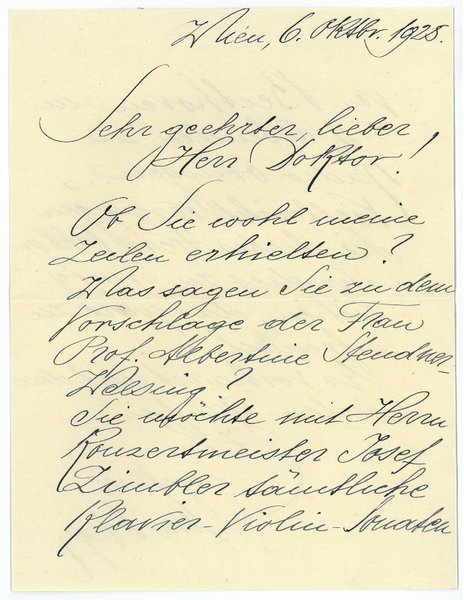 Wien, 6. Oktbr. 1928.
Sehr geehrter, lieber
Herr Doktor!
Ob Sie wohl meine
Zeilen erhielten?
Was sagen Sie zu dem
Vorschlage der Frau
Prof. Albertine Steudner-
Welsing?
Sie möchte mit Herrn
Konzertmeister Josef
Zimbler sämtliche
Klavier-Violin-Sonaten